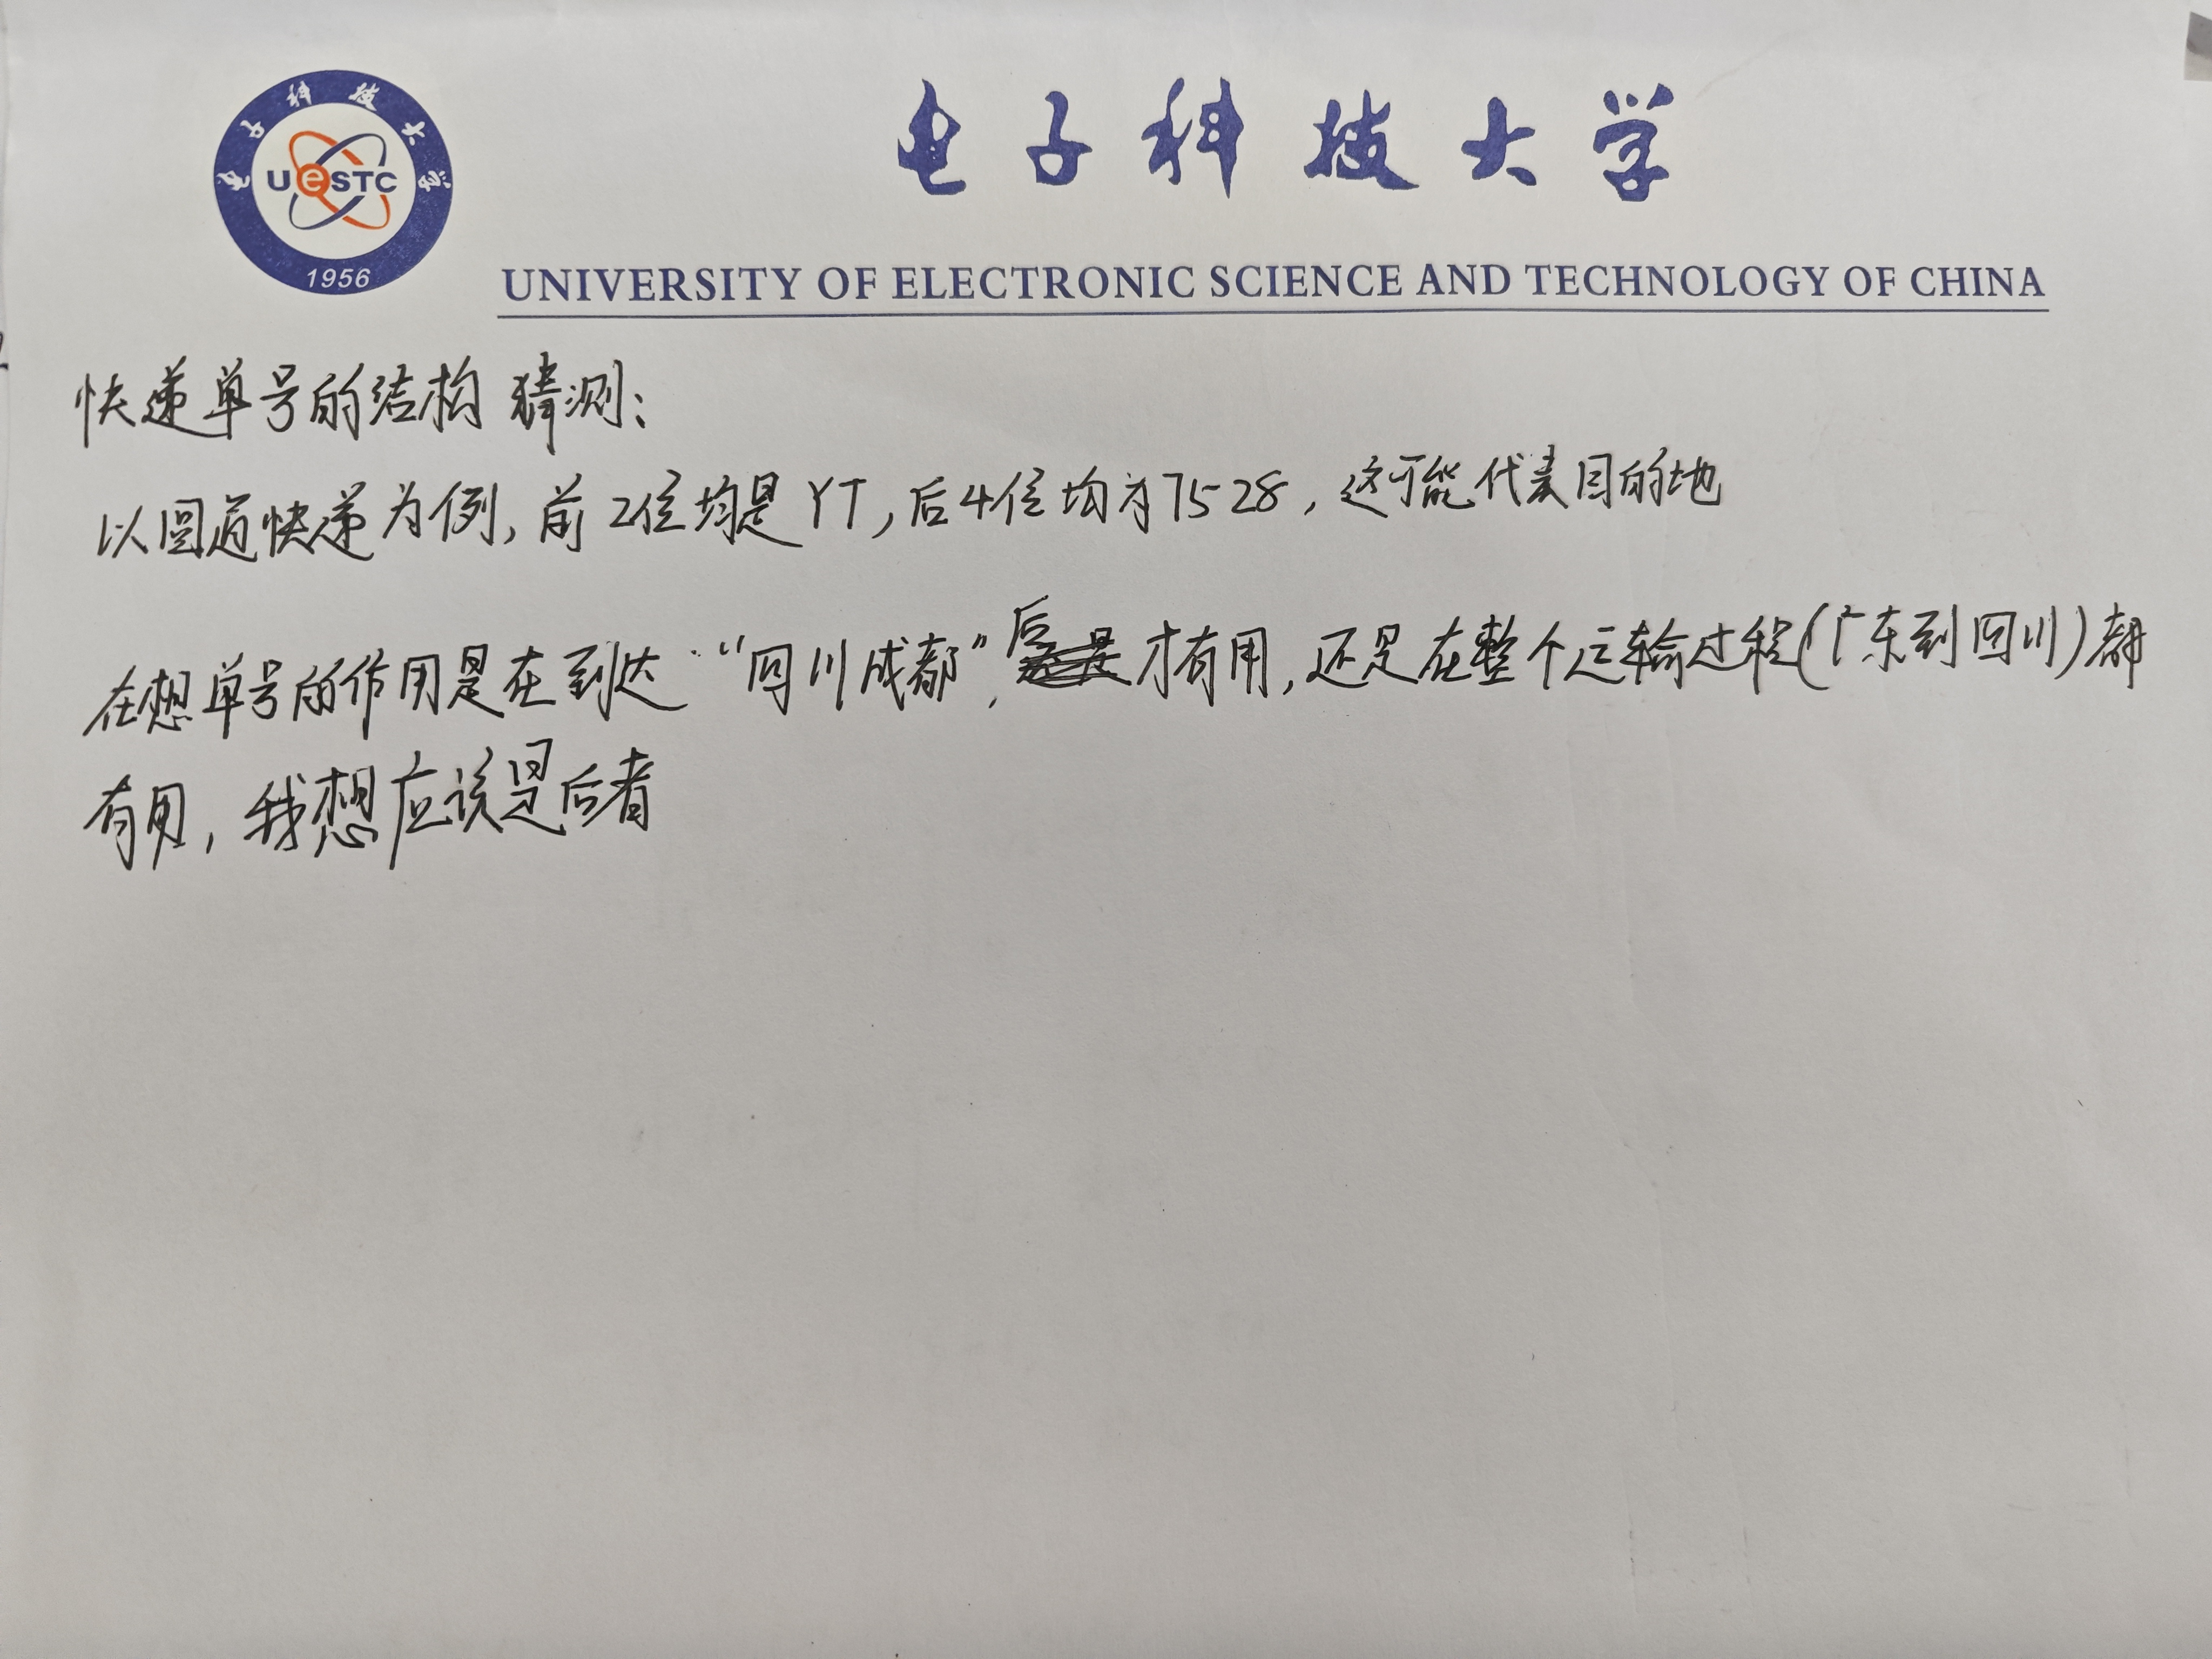 电子科技大学
UeSTC
1956
电子科技大学
UNIVERSITY OF ELECTRONIC SCIENCE AND TECHNOLOGY OF CHINA
快递单号的结构 猜测:
以圆通快递为例, 前2位均是YT, 后4位均为7528, 这可能代表目的地
在想单号的作用是在到达“四川成都”, 后才有用, 还是在整个运输过程(广东到四川)都
有用, 我想应该是后者